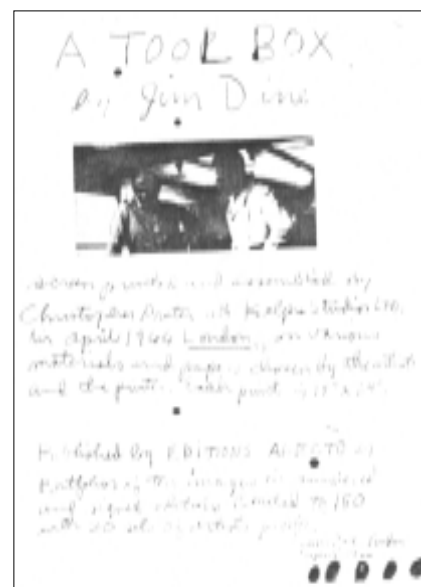 A TOOL BOX
by Jim Dine
screen printed and assembled by
Christopher Prater at Kelpra Studio Ltd.
in April 1966 London, on various
materials and papers chosen by the artist
and the printer. Each print is 19" x 24".
Published by EDITIONS ALECTO as
portfolios of ten images
and signed edition limited to 150
with 20 sets of artist's proofs